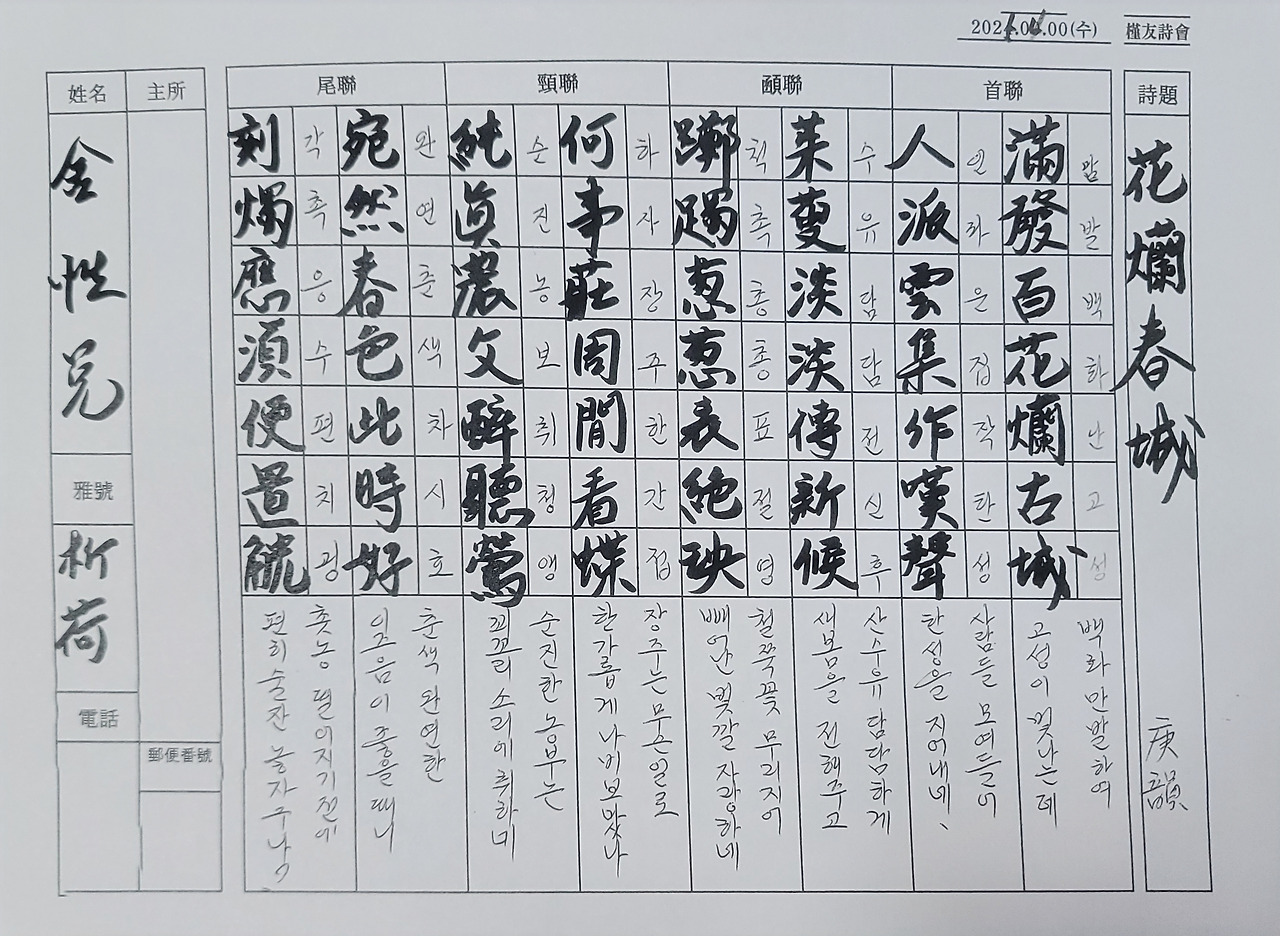 槿友詩會
詩題
花爛春城
庚韻
首聯
滿發百花爛古城
만발백화난고성
백화만발하여
고성이 빛나는데
人派雲集作嘆聲
인파운집작탄성
사람들 모여들어
탄성을 지어내네,
頷聯
茱萸淡淡傳新候
수유담담전신후
산수유 담담하게
새봄을 전해주고
躑躅葱葱表絶映
척촉총총표절영
철쭉꽃 무리지어
빼어난 빛깔 자랑하네
頸聯
何事莊周閒看蝶
하사장주한간접
장주는 무슨일로
한가롭게 나비보았나
純眞農父醉聽鶯
순진농보취청앵
순진한 농부는
꾀꼬리 소리에 취하네
尾聯
宛然春色此時好
완연춘색차시호
춘색 완연한
이즈음이 좋을때니
刻燭應須便置觥
각촉응수편치굉
촛농 떨어지기전에
편히 술잔 놓자구나,
主所
郵便番號
姓名
金性兄
雅號
析荷
電話